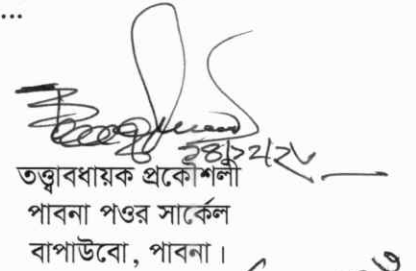 ...
তত্ত্বাবধায়ক প্রকৌশলী
পাবনা পওর সার্কেল
বাপাউবো, পাবনা।